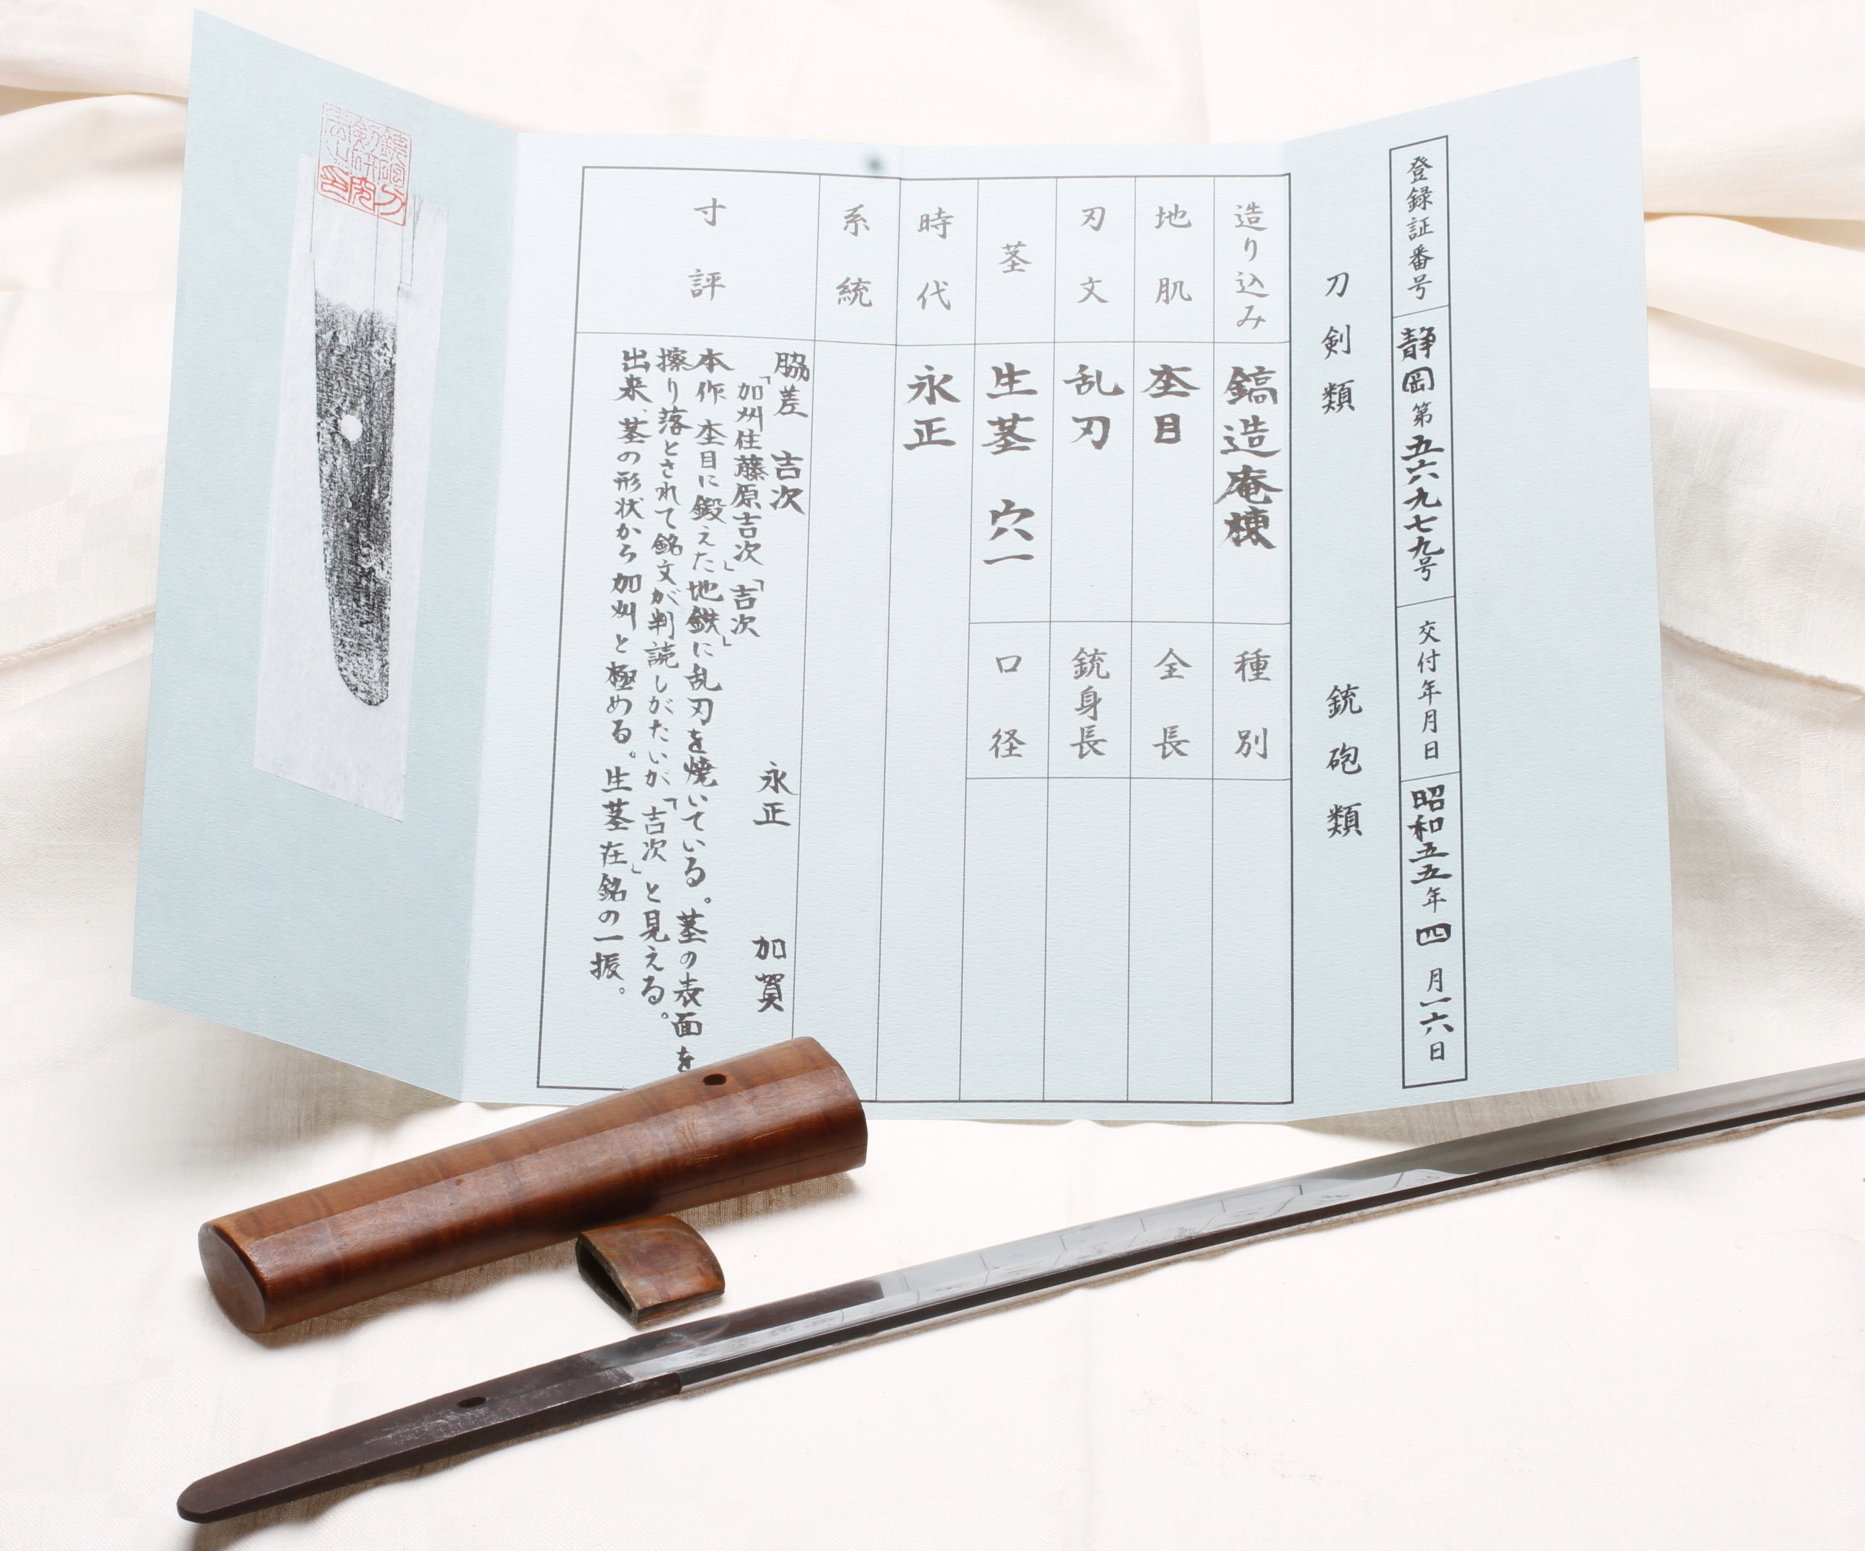 登録証番号 静岡第五六九七九号 交付年月日 昭和五五年四月一六日
刀剣類 銃砲類
造り込み 鎬造庵棟 種別
地肌 杢目 全長
刃文 乱刃 銃身長
茎 生茎 穴一 口径
時代 永正
系統
寸評
脇差 吉次 永正 加賀
「加州住藤原吉次」「吉次」
本作杢目に鍛えた地鉄に乱刃を焼いている。茎の表面を
擦り落とされて銘文が判読しがたいが「吉次」と見える。
出来、茎の形状から加州と極める。生茎在銘の一振。